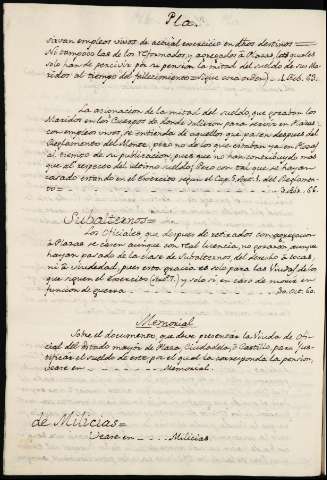 Pla.
sasen empleos vivos de actual exercicio en dhos destinos =
Ni tampoco las de los reformados, y agregados à Plazas, las quales
solo han de percivir por su pension la mitad del sueldo de sus Ma-
ridos al tiempo del fallecimiento 1. Feb. 63.
La asignacion de la mitad del sueldo, que gozaban los
Maridos en los Cuerpos de donde salieron para servir en Plazas
con empleos vivos, se entienda de aquellos que pasen despues del
Reglamento del Monte, pero no de los que estaban ya en Plazas
al tiempo de su publicacion, pues que no han contribuido mas
que al respecto del ultimo sueldo; Pero con tal que se hayan
casado estando en el Exercito segun el Cap. Art. del Reglamen-
to = 66.
Subalternos =
Los Oficiales, que despues de retirados con agregacion
à Plazas se casen aunque con real licencia, no gozaran aunque
hayan pasado de la clase de Subalternos del derecho à tocas,
ni à viudedad, pues esta gracia es solo para las Viudas de los
que siguen el Exercito y solo en caso de morir en
funcion de guerra 30. Oct. 60.
Memorial
Sobre el documento, que deve presentar la Viuda de Ofi-
cial del Estado mayor de Plaza, Ciudadela, ò Castillo, para jus-
tificar el sueldo de este por el qual la corresponda la pension,
Vease en Memorial.
de Milicias =
Vease en Milicias